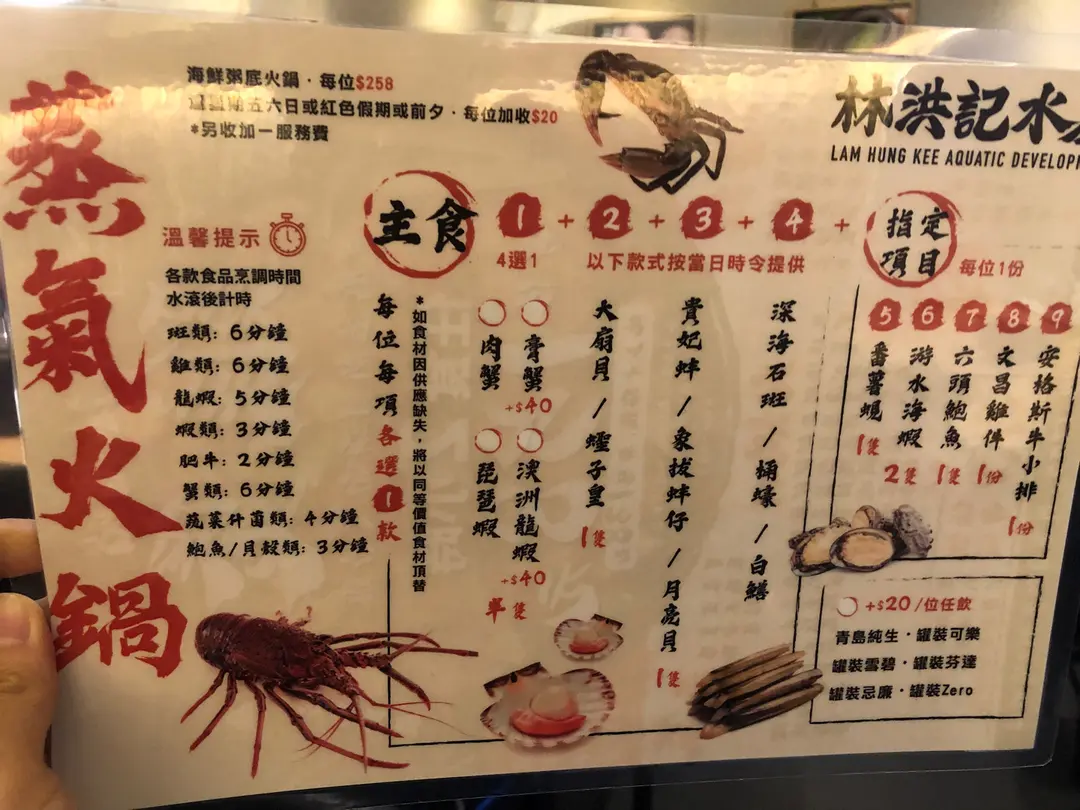 蒸氣火鍋
海鮮粥底火鍋・每位$258
星期五六日或紅色假期或前夕・每位加收$20
*另收加一服務費
林洪記水
LAM HUNG KEE AQUATIC
溫馨提示
各款食品烹調時間
水滾後計時
斑類：6分鐘
雞類：6分鐘
龍蝦：5分鐘
蝦類：3分鐘
肥牛：2分鐘
蟹類：6分鐘
蔬菜什菌類：4分鐘
鮑魚/貝殼類：3分鐘
主食
1 + 2 + 3 + 4 +
指定項目
每位1份
4選1
以下款式按當日時令提供
每位每項各選1款
*如食材因供應缺失，將以同等價值食材頂替
肉蟹
膏蟹
+$40
琵琶蝦
澳洲龍蝦
+$40
單隻
大扇貝/蟶子皇
1隻
貴妃蚌/象拔蚌仔/月亮貝
1隻
深海石斑/桶蠔/白鱔
5 6 7 8 9
番薯蜆
1隻
游水海蝦
2隻
六頭鮑魚
1隻
文昌雞件
1份
安格斯牛小排
1份
+$20/位任飲
青島純生・罐裝可樂
罐裝雪碧・罐裝芬達
罐裝忌廉・罐裝Zero